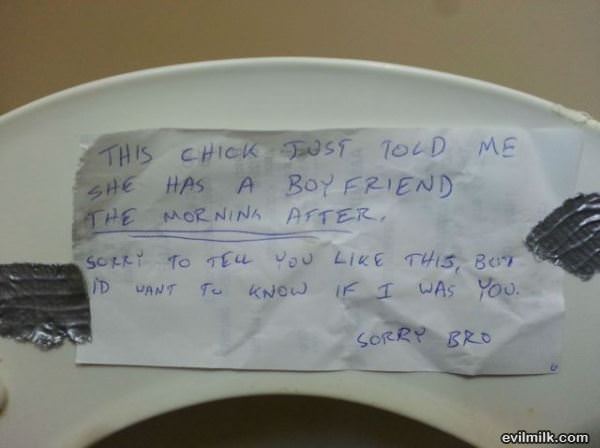 THIS CHICK JUST TOLD ME
SHE HAS A BOYFRIEND
THE MORNING AFTER.
SORRY TO TELL YOU LIKE THIS, BUT
I'D WANT TO KNOW IF I WAS YOU.
SORRY BRO
evilmilk.com